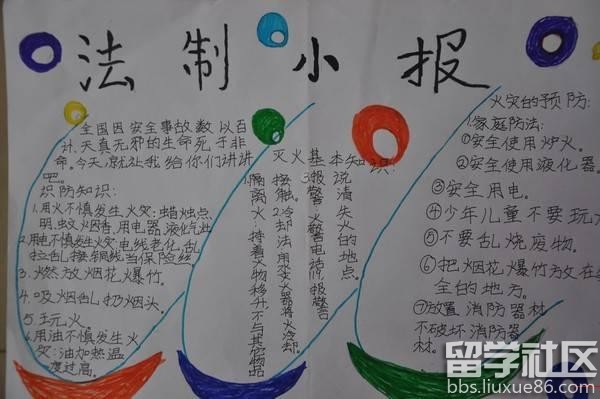 法制小报
全国因安全事故数以百
计.天真无邪的生命死于非
命.今天,就让我给你们讲讲
吧。
识防知识:
1.用火不慎发生火灾:蜡烛点
明.蚊火烟香.用电器.液化气灶
2.用电不慎发生火灾:电线老化,乱
拉乱接,铜线当保险丝
3.燃放烟花爆竹。
4.吸烟乱扔烟头。
5.玩火。
6.用油不慎发生火
灾:油加热温
度过高。
灭火基本知识:
1.隔离火
持着火物移升,不与其它物品
接触。
2.冷却法:用灭火器将火冷却.
3.报警:火警电话119,报警
说清失火的地点.
火灾的预防:
1.家庭防法:
①安全使用炉火。
②安全使用液化器
③安全用电。
④少年儿童不要玩火
⑤不要乱烧废物。
⑥把烟花爆竹放在
全的地方。
⑦放置消防器材
不破坏消防器
材。
留学社区
bbs.liuxue86.com